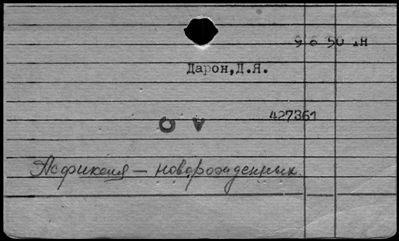 9 6 50 лн
Дарон,Д.Я.
427361
О V
Асфиксия — новорожденных.